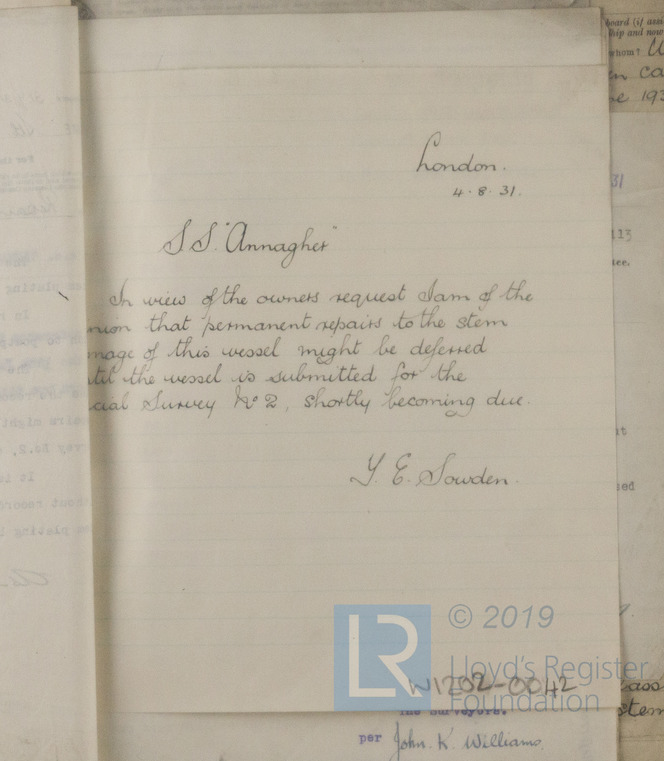 London.
4.8.31.
S.S. "Annagher"
In view of the owners request I am of the
nion that permanent repairs to the stem
mage of this vessel might be deferred
ntil the vessel is submitted for the
cial Survey No 2, shortly becoming due.
Y. E. Sowden.
LR
© 2019
Lloyd's Register
Foundation
W1202-0042
The Surveyors.
per John. K. Williams.
board (if
ship and now
whom?
ca
193
31
113
tee.
t
sed
lass
stem